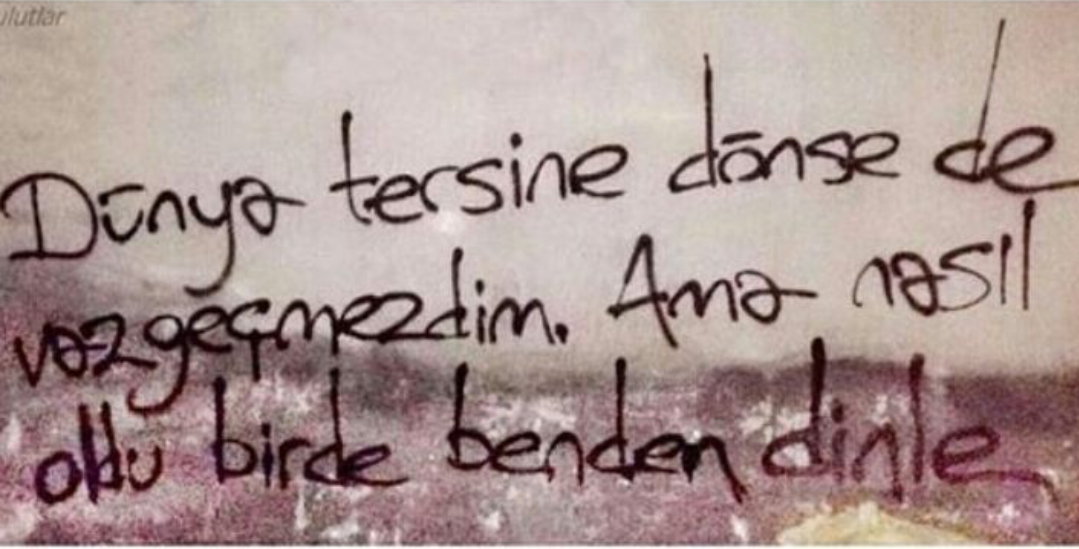 ulutlar
Dünya tersine dönse de
vazgeçmezdim. Ama nasıl
oldu birde benden dinle